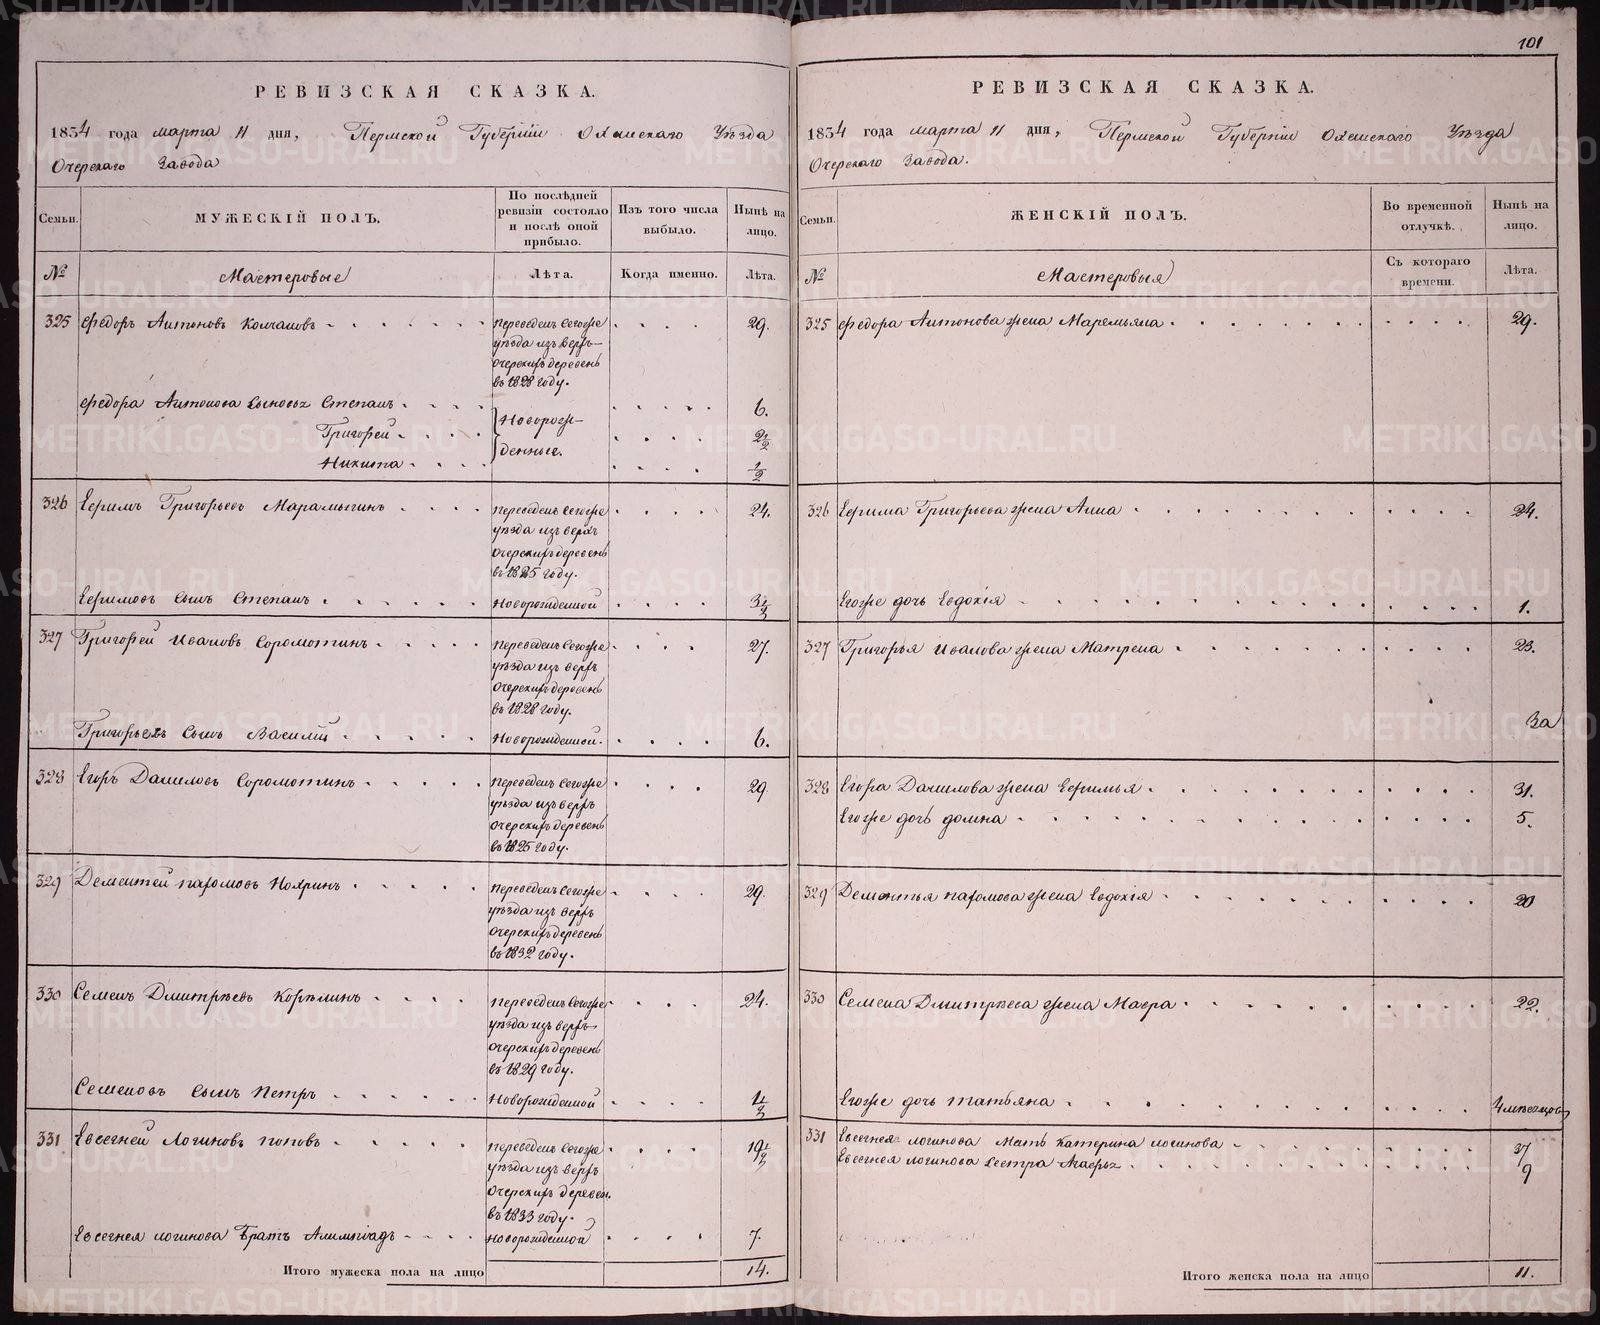 101
РЕВИЗСКАЯ СКАЗКА.
1834 года марта 11 дня, Пермской Губернiи Оханскаго Уѣзда
Очерскаго Завода
Семьи.
МУЖЕСКIЙ ПОЛЪ.
По послѣдней ревизiи состояло и послѣ оной прибыло.
Изъ того числа выбыло.
Нынѣ на лицо.
№
Мастеровые
Лѣта.
Когда именно.
Лѣта.
325 Федоръ Антоновъ Колчановъ
переведенъ Сегоже
уѣзда изъ верхъ-
очерскихъ деревень
въ 1828 году.
29.
Федора Антонова сыновья Степанъ
6.
Григорей
2 1/2
Никита
1/2
Новорож-
денные.
326 Ефимъ Григорьевъ Марамыгинъ
переведенъ Сегоже
уѣзда изъ верхъ
очерскихъ деревень
въ 1825 году.
24.
Ефимовъ сынъ Степанъ
новорожденной
3 1/2
327 Григорей Ивановъ Соромотинъ
переведенъ Сегоже
уѣзда изъ верхъ
очерскихъ деревень
въ 1828 году.
27.
Григорьевъ сынъ Василiй
новорожденной.
6.
328 Егоръ Даниловъ Соромотинъ
переведенъ Сегоже
уѣзда изъ верхъ
очерскихъ деревень
въ 1825 году.
29
329 Дементей Пахомовъ Нохринъ
переведенъ Сегоже
уѣзда изъ верхъ
очерскихъ деревень
въ 1832 году.
29.
330 Семенъ Дмитрѣевъ Корѣлинъ
переведенъ Сегоже
уѣзда изъ верхъ
очерскихъ деревень
въ 1829 году.
24.
Семеновъ сынъ Петръ
новорожденной
1/2
331 Евсегней Логиновъ Поповъ
переведенъ Сегоже
уѣзда изъ верхъ
очерскихъ деревен.
въ 1833 году.
19 1/2
Евсегнея Логинова Братъ
новорожденной
7.
Итого мужеска пола на лицо
14.
РЕВИЗСКАЯ СКАЗКА.
1834 года марта 11 дня, Пермской Губернiи Оханскаго Уѣзда
Очерскаго Завода.
Семьи.
ЖЕНСКIЙ ПОЛЪ.
Во временной отлучкѣ.
Нынѣ на лицо.
№
Мастеровыя
Съ котораго времени.
Лѣта.
325 Федора Антонова жена Маремьяна
29.
326 Ефима Григорьева жена Анна
24.
Егоже дочь Евдокiя
1.
327 Григорья Иванова жена Матрена
23.
За
328 Егора Данилова жена Ефимья
31.
Егоже дочь домна
5.
329 Дементья Пахомова жена Евдокiя
20
330 Семена Дмитрѣева жена Мавра
22.
Егоже дочь татьяна
4 мѣсяцов
331 Евсегнея Логинова Мать Катерина логинова
37
Евсегнея логинова сестра Агафья
9
Итого женска пола на лицо
11.
METRIKI.GASO-URAL.RU